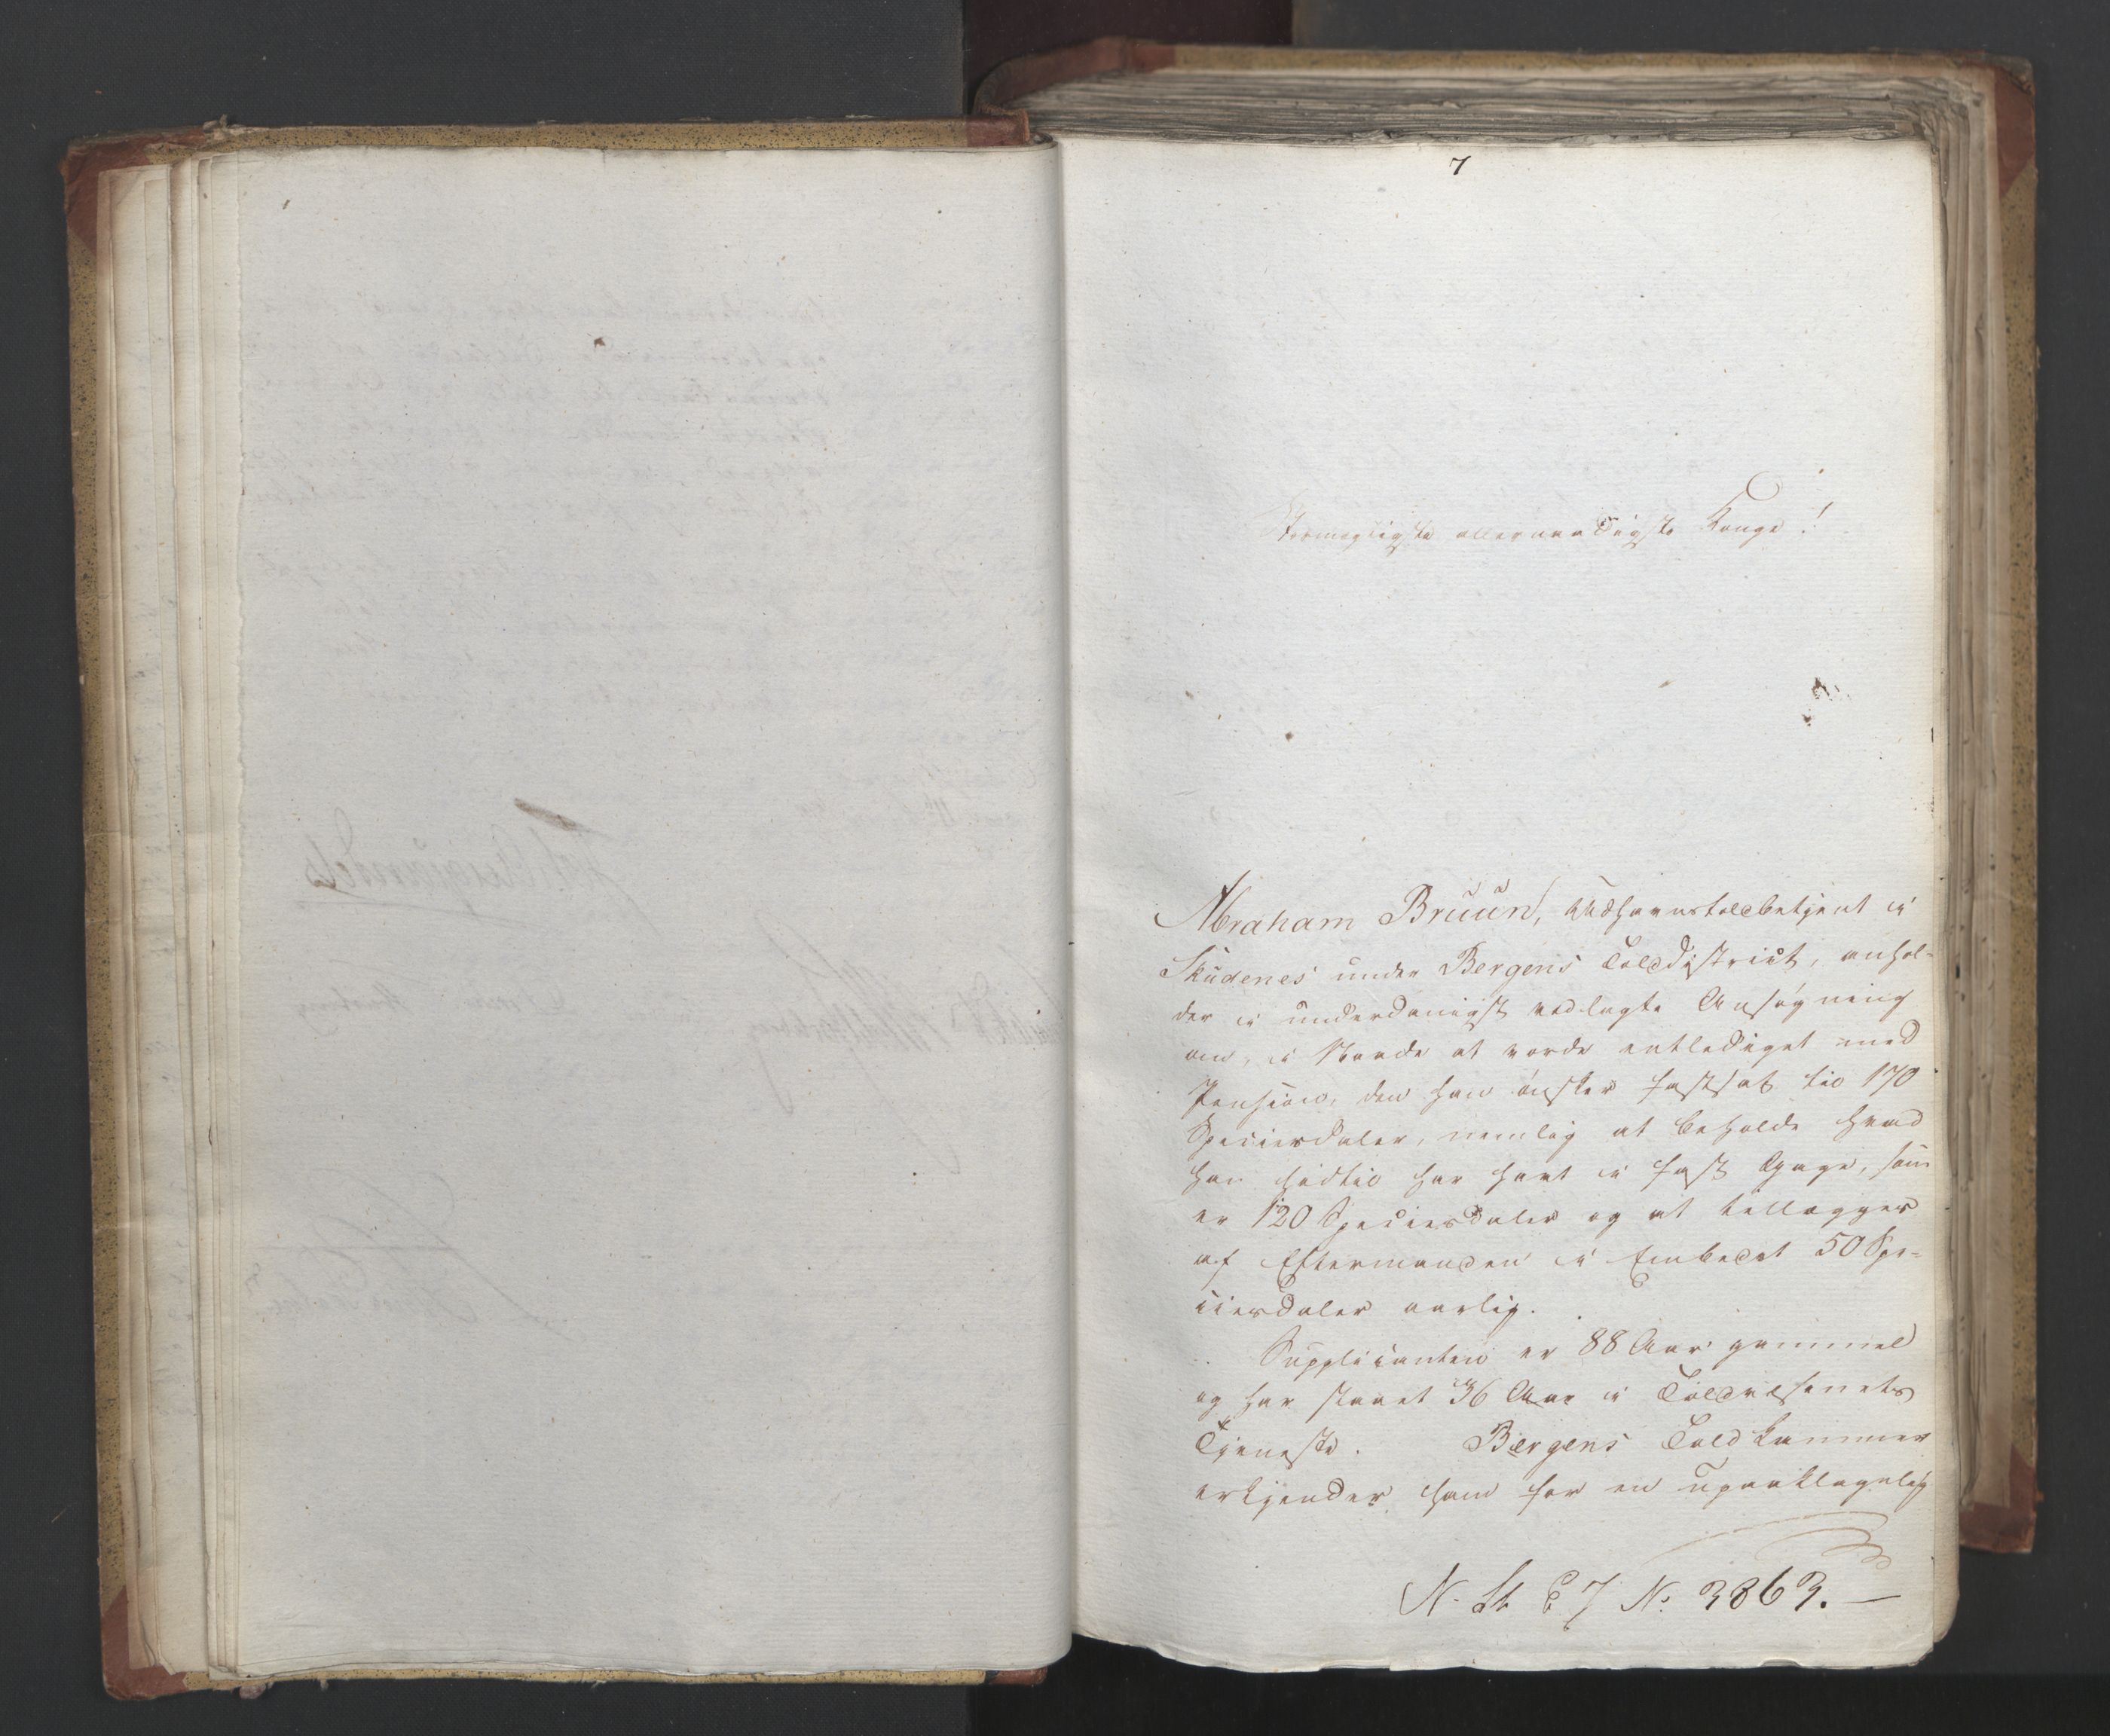 7
Stormægtigste allernaadigste Konge!
Abraham Bruun, Udhavnstoldbetjent i
Skudenes under Bergens Tolddistrict, anhol-
der i underdanigst vedlagte Ansøgning
om, i Naade at vorde entlediget med
Pension, den han ønsker fastsat til 170
Speciesdaler, nemlig at beholde hvad
han hidtil har havt i fast Gage, som
er 120 Speciesdaler og at tillægges
af Eftermanden i Embedet 50 Spe-
ciesdaler aarlig.
Supplicanten er 88 Aar gammel
og har staaet 36 Aar i Toldvæsenets
Tjeneste. Bergens Toldkammer
erkjender ham for en upaaklagelig
N. St E 7 No 3863.